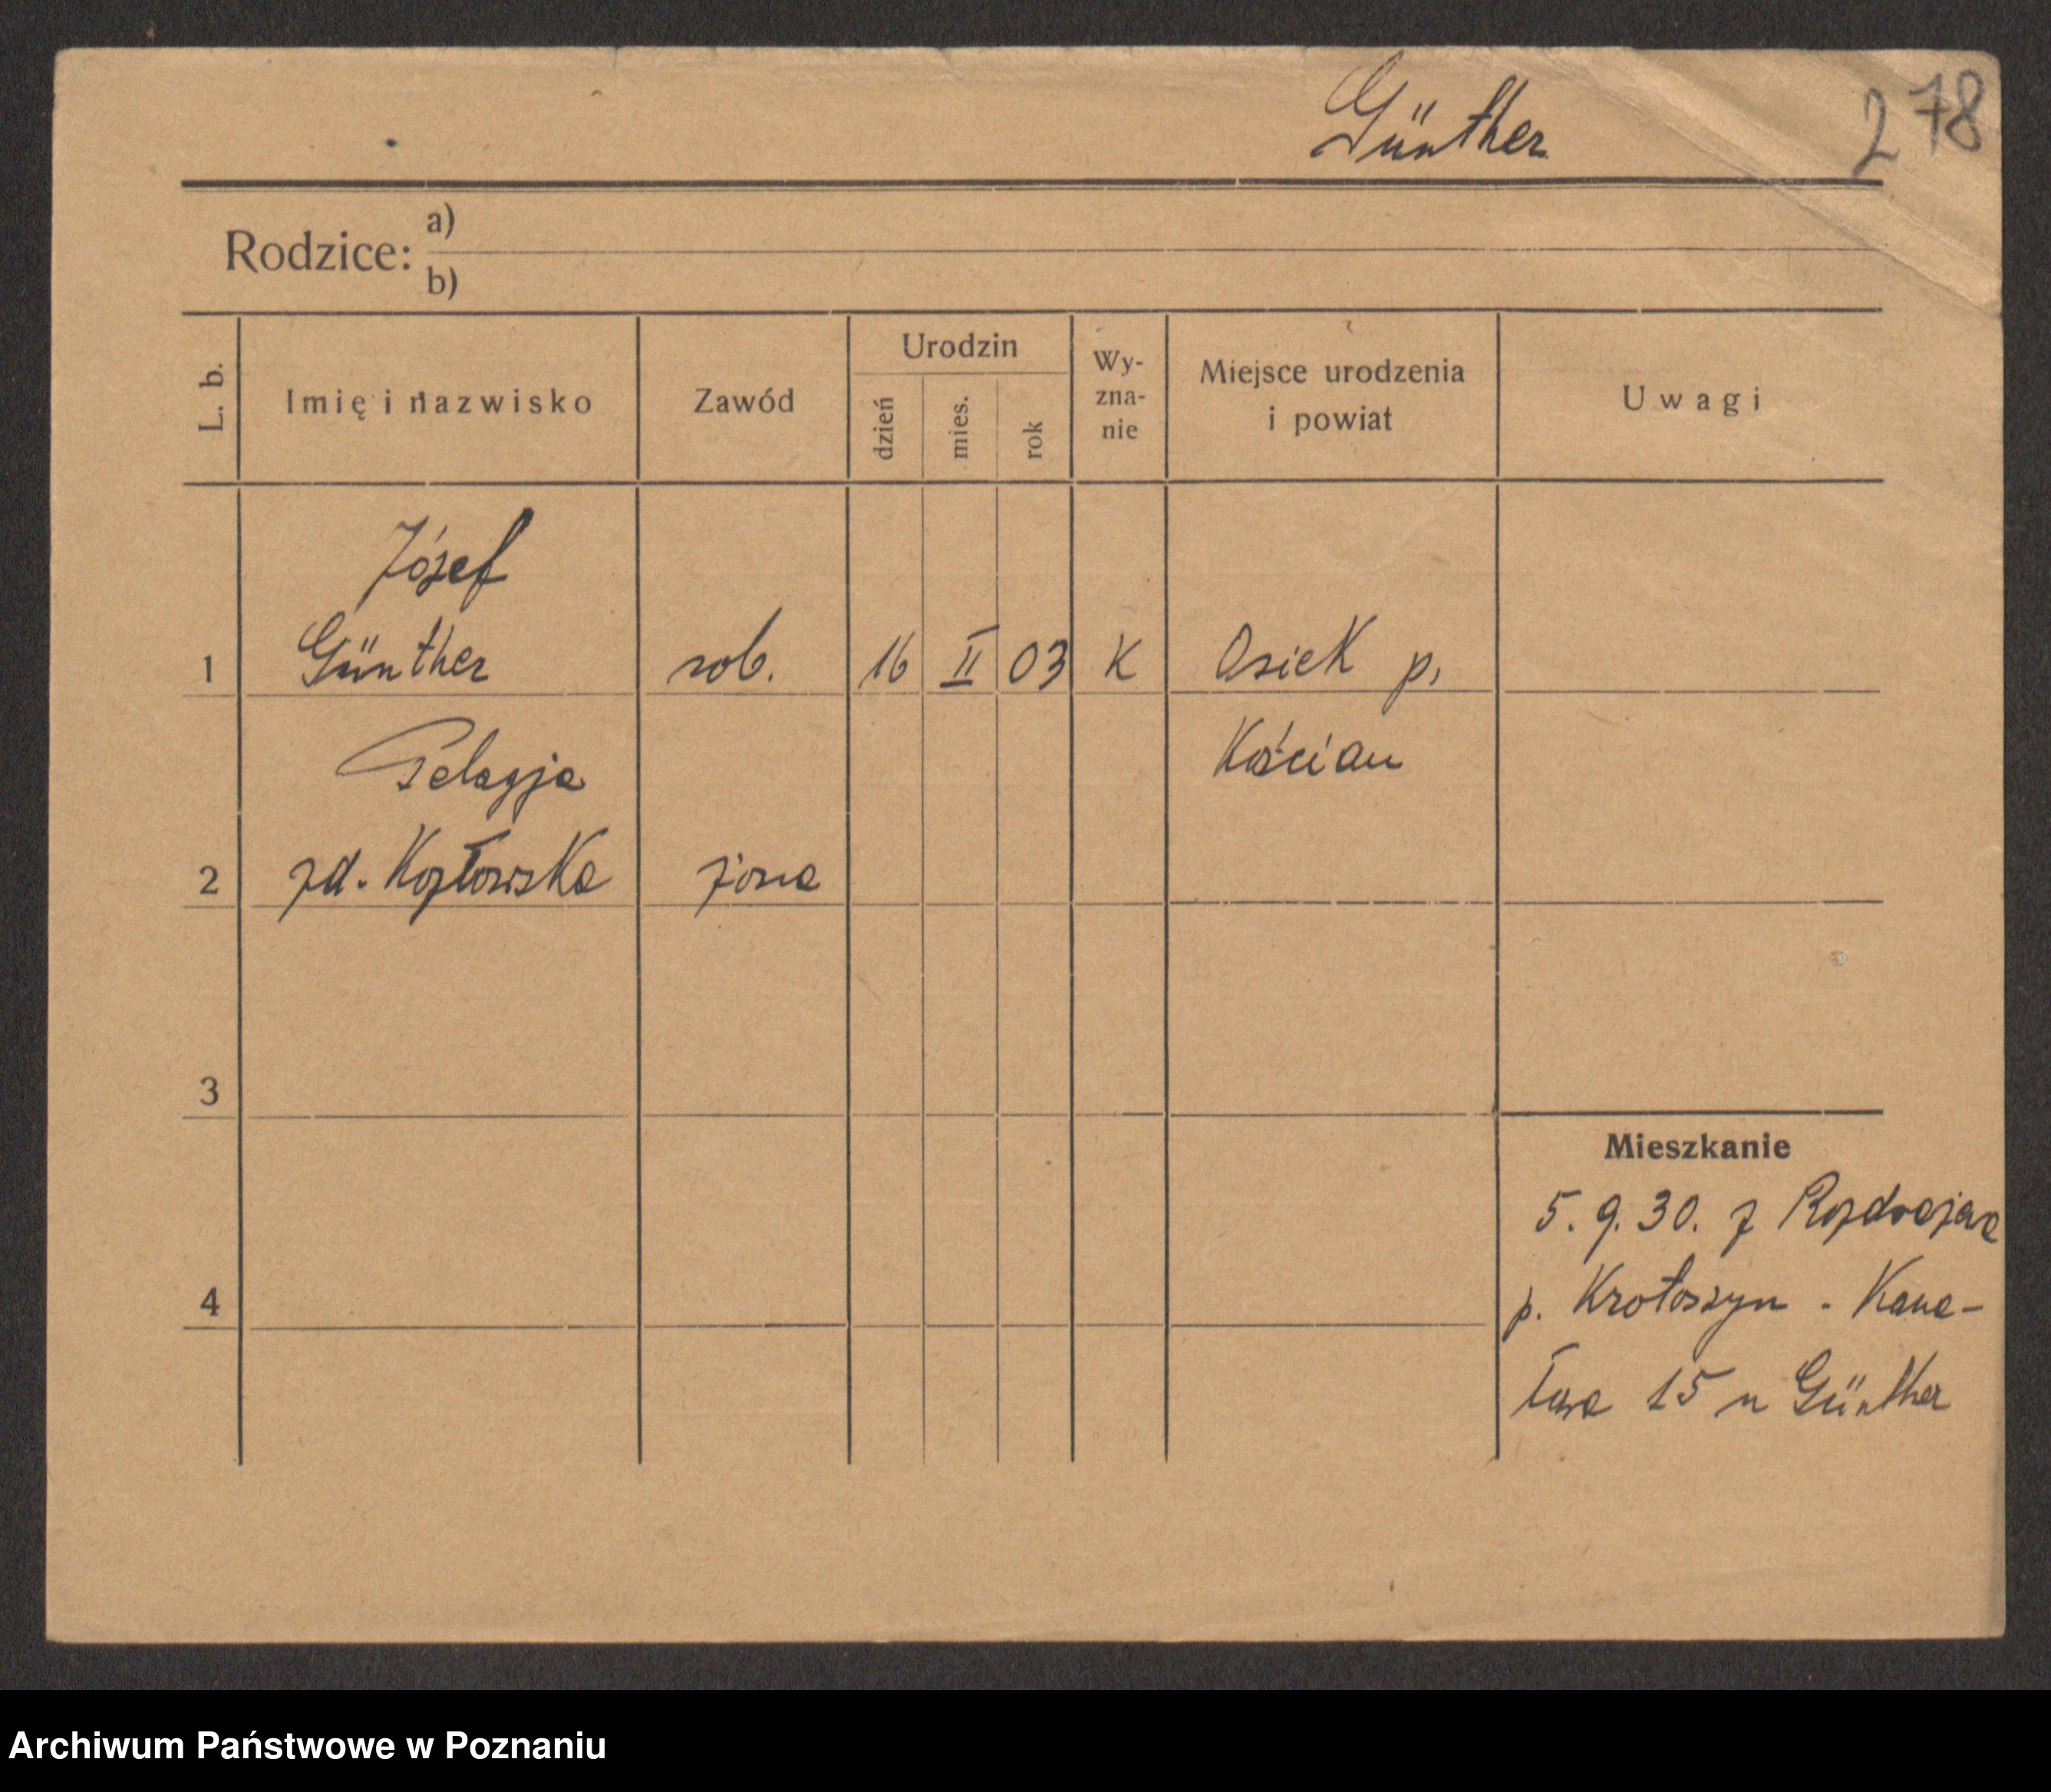 Günther
278
Rodzice: a)
b)
L. b.
Imię i nazwisko
Zawód
Urodzin
dzień
mies.
rok
Wy-
zna-
nie
Miejsce urodzenia
i powiat
Uwagi
Józef
1 Günther rob. 16 II 03 K Osiek p.
Pelagja Kościan
2 zd. Kozłowska żona
3
4
Mieszkanie
5. 9. 30. z
p. Krotoszyn - Kana-
łowa 15 u Günther
Archiwum Państwowe w Poznaniu